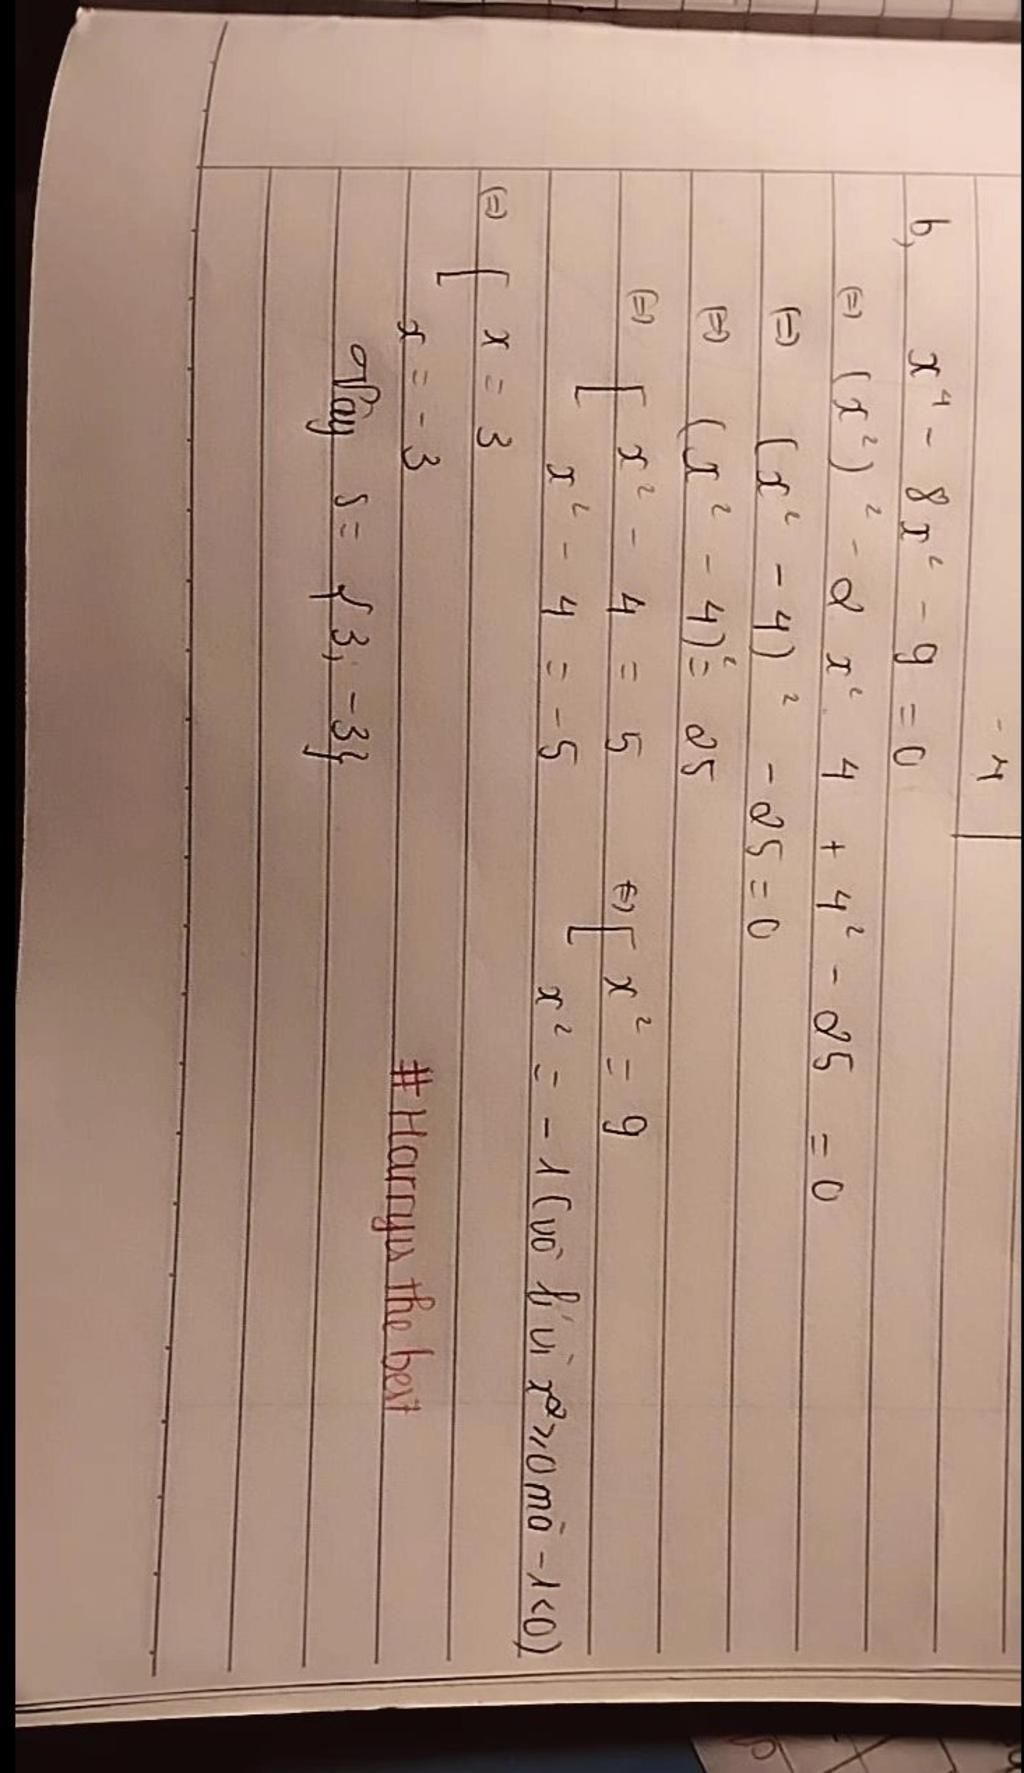 - 4
b, x⁴ - 8x² - 9 = 0
(=) (x²)² - 2 x². 4 + 4² - 25 = 0
(=) (x² - 4)² - 25 = 0
(=) (x² - 4)² = 25
(=) [ x² - 4 = 5 (=) [ x² = 9
x² - 4 = -5 x² = -1 (vô lí vì x² ⩾ 0 mà -1 < 0)
(=) [ x = 3
x = -3
Vậy S = { 3; -3}
#Harryis the best